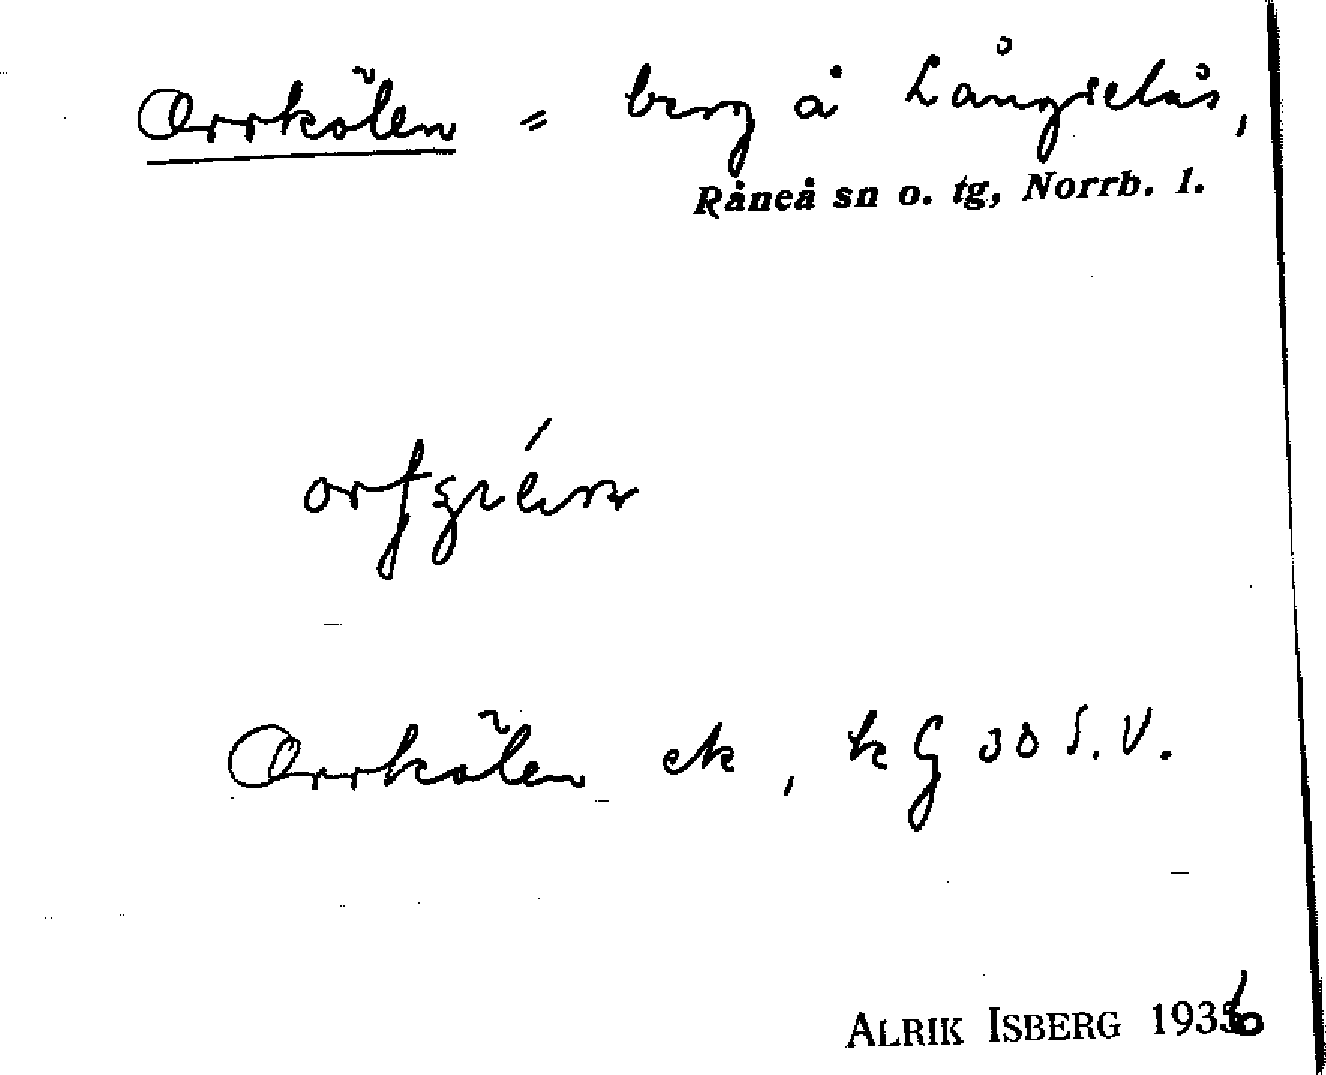 Orrkölen = berg å Långselås,
Råneå sn o. tg, Norrb. l.
Orrkölen ek, kG 30 S.V.
ALRIK ISBERG 1936